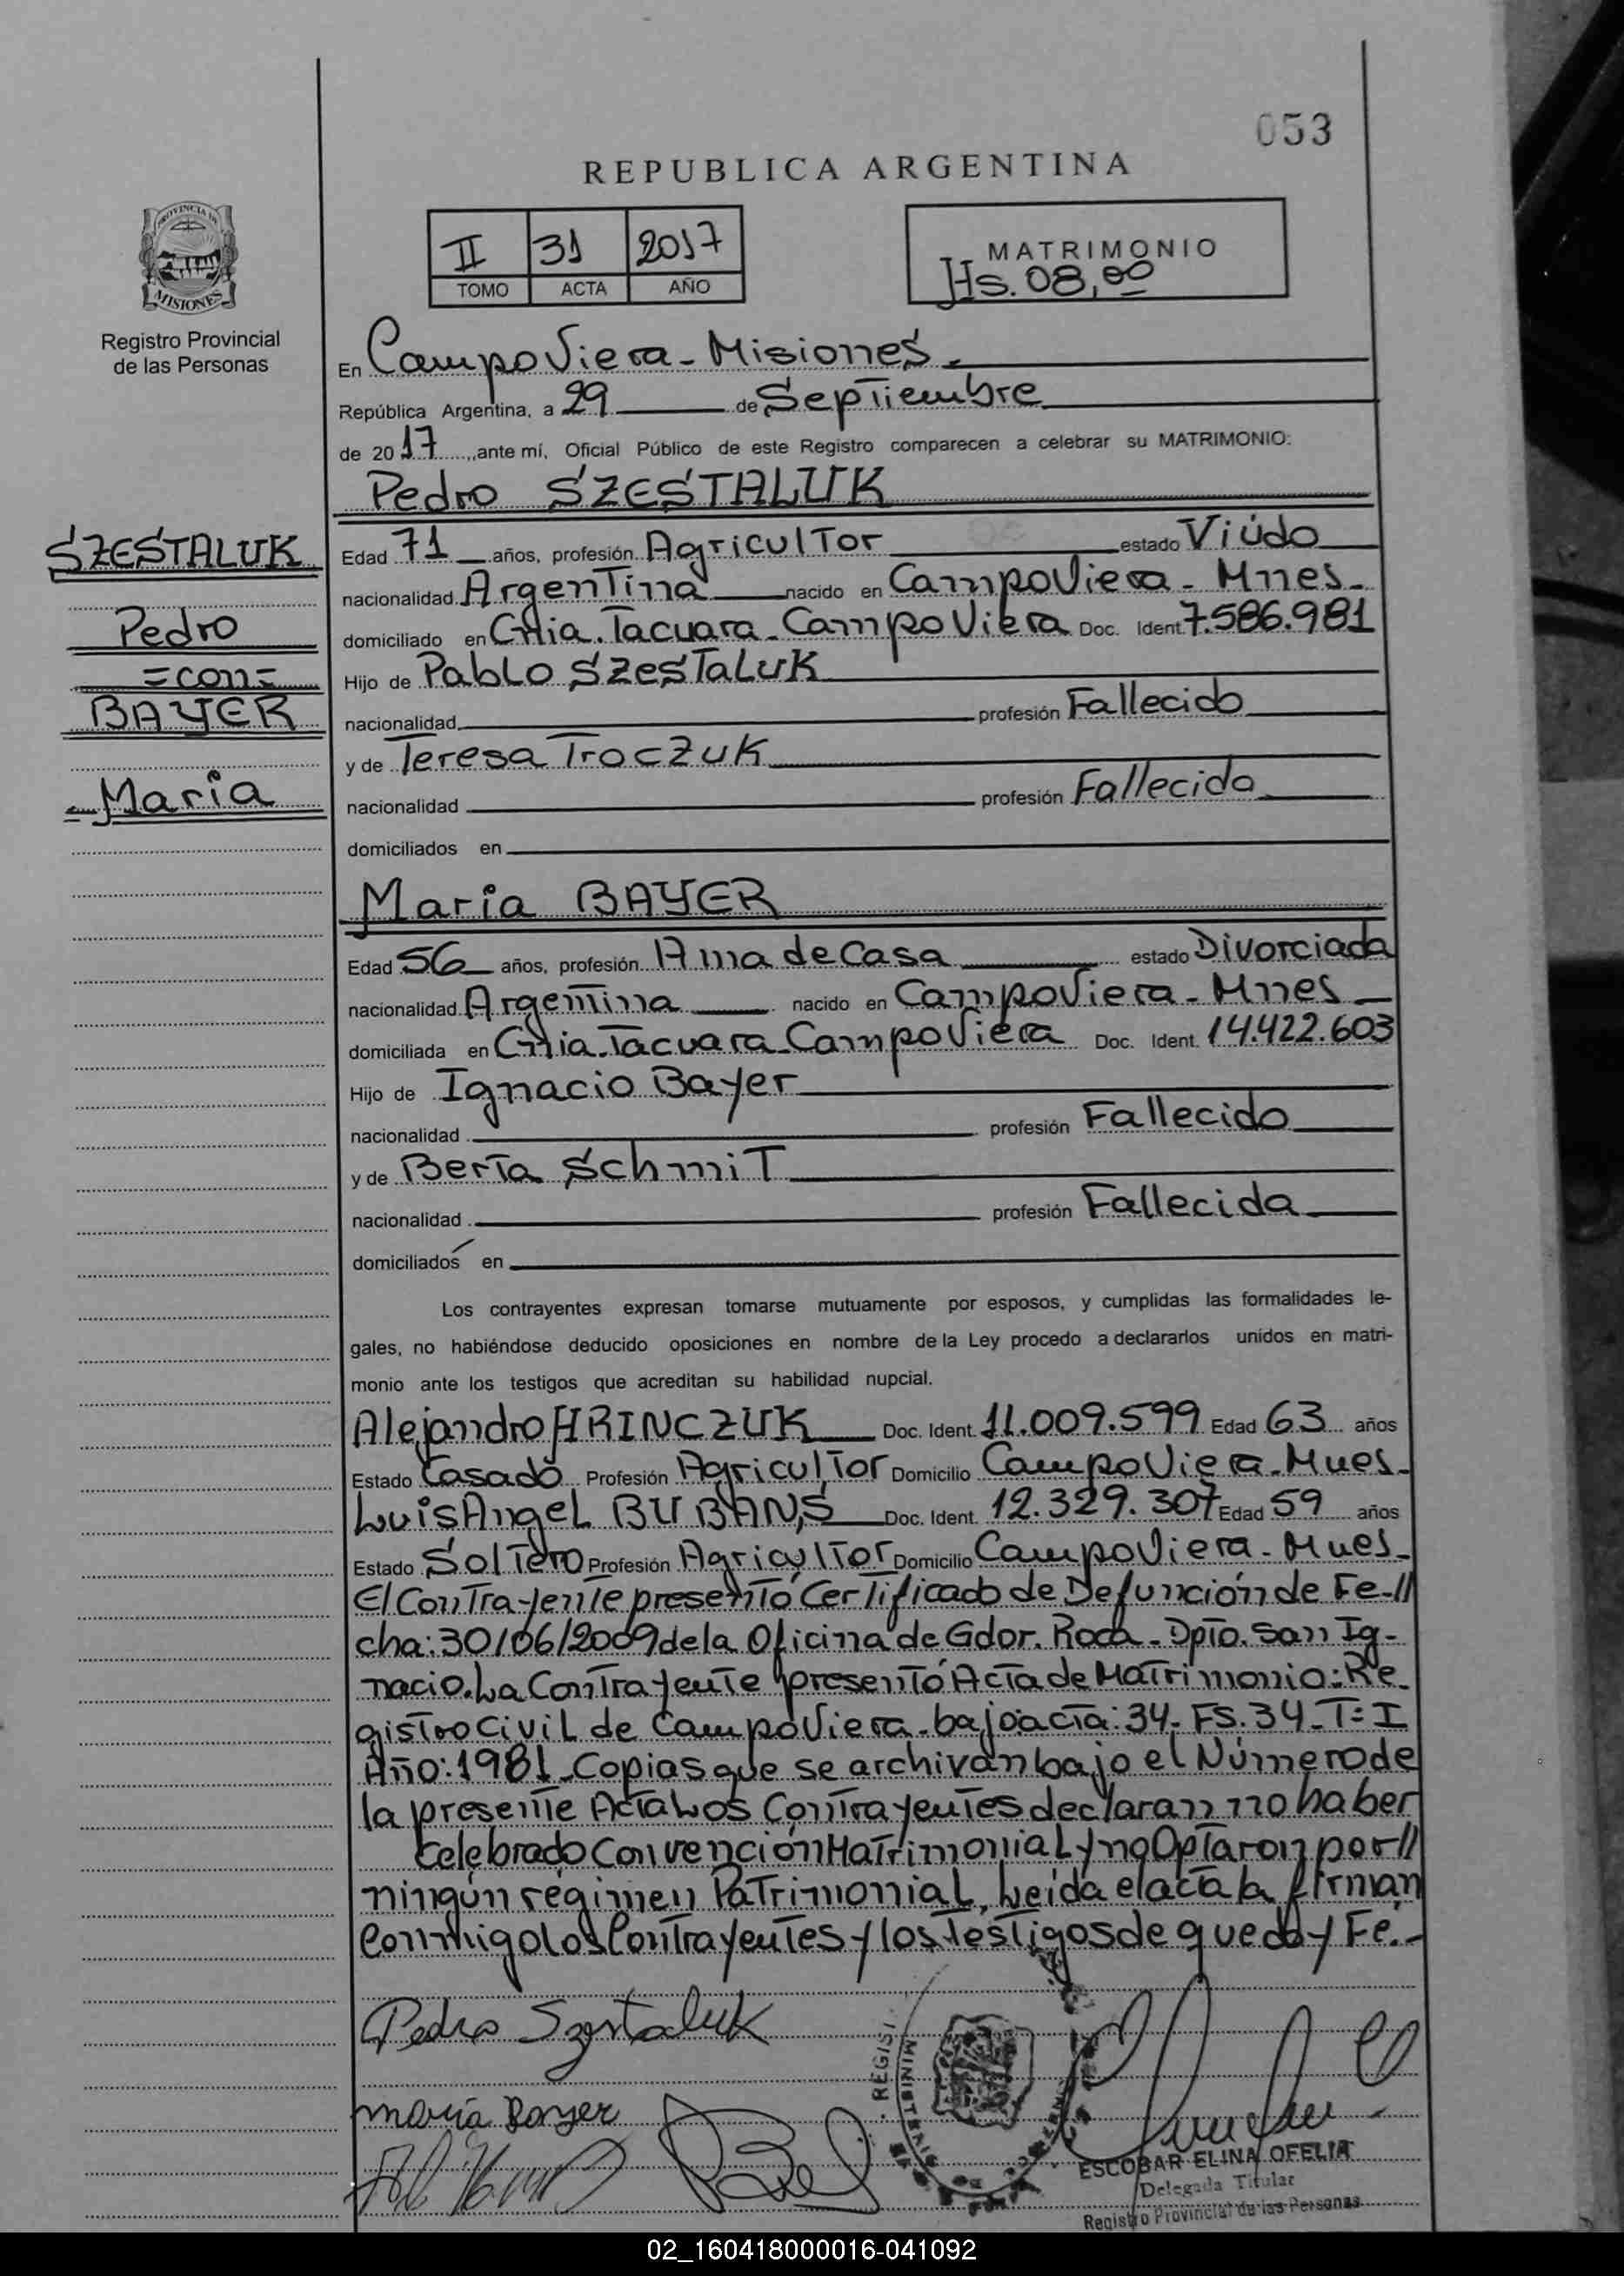 053
REPUBLICA ARGENTINA
II 31 2017
TOMO ACTA AÑO
MATRIMONIO
Hs. 08,00
PROVINCIA DE
MISIONES
Registro Provincial
de las Personas
En Campo Viera - Misiones.
República Argentina, a 29 de Septiembre
de 2017, ante mí, Oficial Público de este Registro comparecen a celebrar su MATRIMONIO:
Pedro SZESTALUK
SZESTALUK
Pedro
=con=
BAYER
María
Edad 71 años, profesión Agricultor estado Viúdo
nacionalidad Argentina nacido en Campo Viera - Mnes.
domiciliado en Cnia. Tacuara - Campo Viera Doc. Ident. 7.586.981
Hijo de Pablo Szestaluk
nacionalidad profesión Fallecido
y de Teresa Troczuk
nacionalidad profesión Fallecida
domiciliados en
María BAYER
Edad 56 años, profesión Ama de Casa estado Divorciada
nacionalidad Argentina nacido en Campo Viera - Mnes
domiciliada en Cnia. Tacuara - Campo Viera Doc. Ident. 14.422.603
Hijo de Ignacio Bayer
nacionalidad profesión Fallecido
y de Berta Schmit
nacionalidad profesión Fallecida
domiciliados en
Los contrayentes expresan tomarse mutuamente por esposos, y cumplidas las formalidades le-
gales, no habiéndose deducido oposiciones en nombre de la Ley procedo a declararlos unidos en matri-
monio ante los testigos que acreditan su habilidad nupcial.
Alejandro HRINCZUK Doc. Ident. 11.009.599 Edad 63 años
Estado Casado Profesión Agricultor Domicilio Campo Viera - Mnes.
Luis Angel BUBANS Doc. Ident. 12.329.307 Edad 59 años
Estado Soltero Profesión Agricultor Domicilio Campo Viera - Mnes.
El Contrayente presentó Certificado de Defunción de Fe-//
cha: 30/06/2009 de la Oficina de Gdor. Roca - Dpto. San Ig-
nacio. La Contrayente presentó Acta de Matrimonio: Re-
gistro Civil de Campo Viera - bajo acta: 34. FS. 34 - T: I
Año: 1981 - Copias que se archivan bajo el Número de
la presente Acta Los Contrayentes declaran no haber
celebrado Convención Matrimonial y no Optaron por //
ningún régimen Patrimonial, Leída el acta la firman
Conmigo los Contrayentes y los testigos de que doy Fé.-
Pedro Szestaluk
maría Bayer
REGIS
MINISTERIO
ESCOBAR ELINA OFELIA
Delegada Titular
Registro Provincial de las Personas
02_160418000016-041092